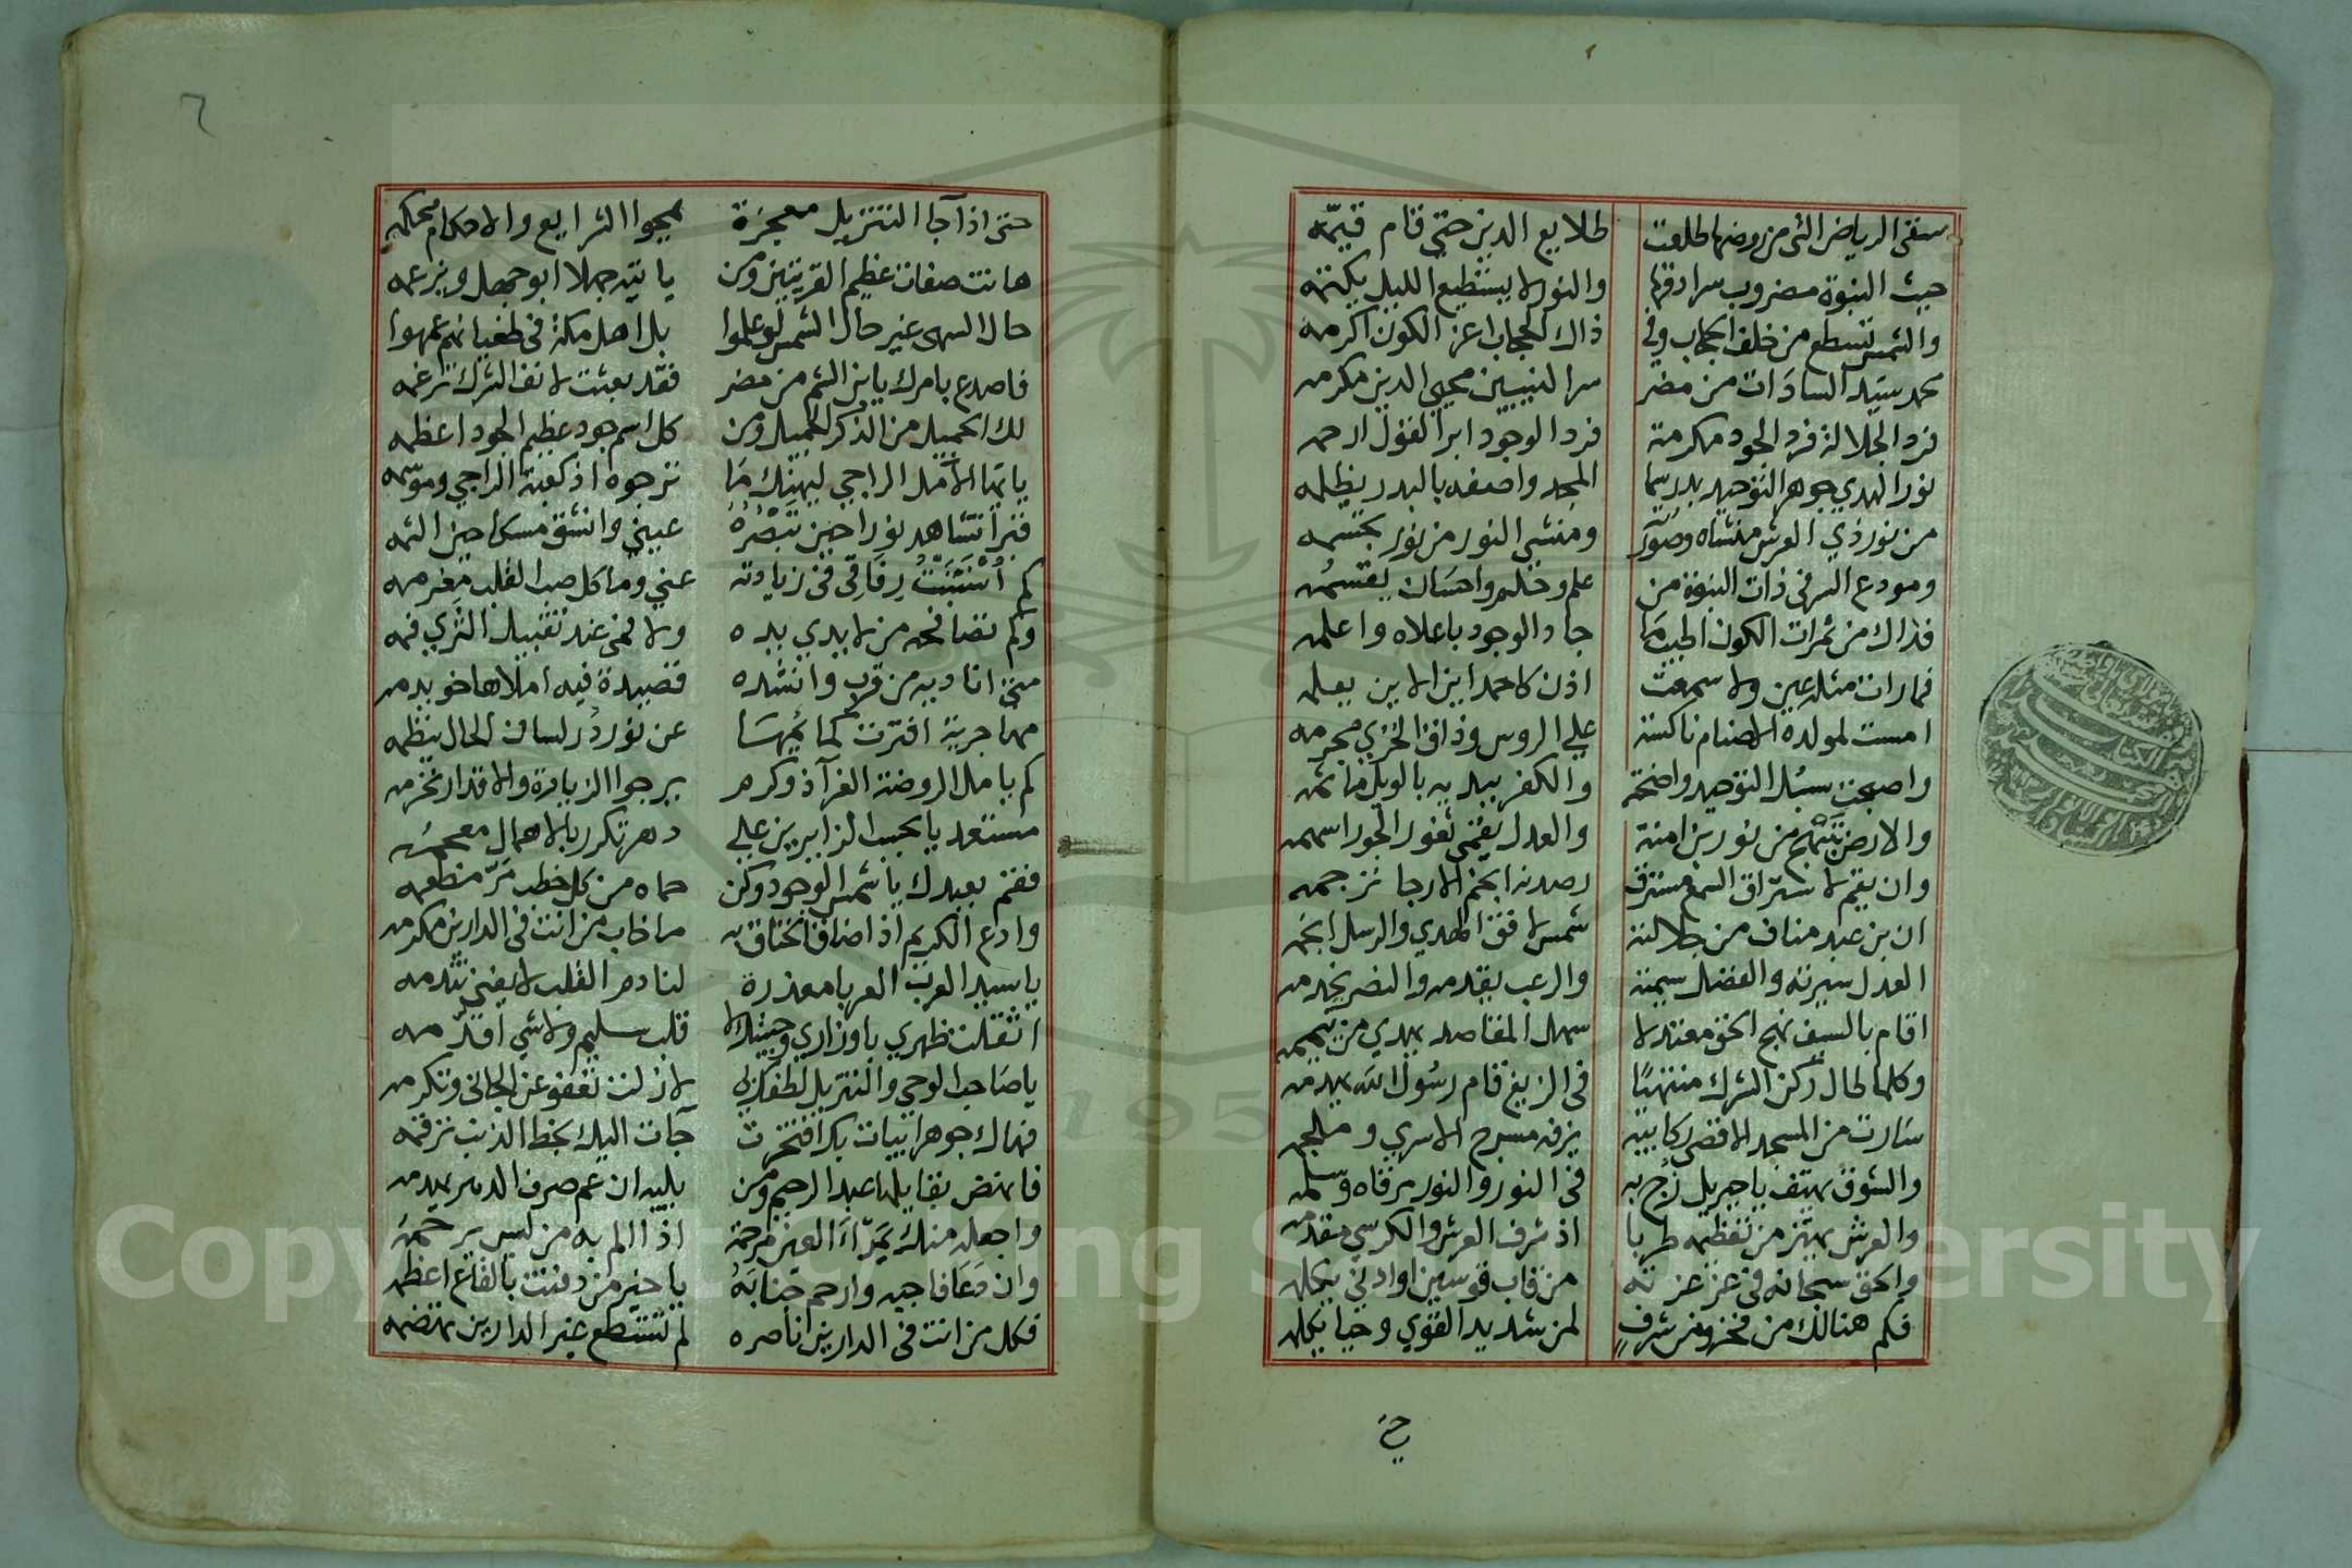 سقى الرياض التى من روضها طلعت طلايع الدين حتى قام قيّمه
حيث النبوة مضروب سرادقها والنور لا يستطيع الليل يكتمه
والشمس تسطع من خلف الحجاب وفى ذاك الحجاب اعز الكون اكرمه
محمد سيد السادات من مضر سر النبيين محيى الدين مكرمه
فرد الجلالة فرد الجود مكرمة فرد الوجود ابر القول ارحمه
نور الهدي جوهر التوحيد بدر سما المجد واصفه بالبدر يظلمه
من نور ذي العرش منشاه وصورته ومنشى النور من نور يجسمه
ومودع السر فى ذات النبوة من علم وحلم واحسان يقسمه
فذاك من ثمرات الكون اطيب ما جاد الوجود باعلاه واعلمه
فما رات مثله عين ولا سمعت اذن كاحمد اين الاين يعلمه
امست لمولده الاصنام ناكسة علي الروس وذاق الخزي مجرمه
واصبحت سبل التوحيد واضحة والكفر يبديه بالويل ماتمه
والارض تبتهج من نور بن امنة والعدل يقتمى ثغور الجور اسهمه
وان يقم لاستراق السمع مسترق رصدته انجم الارجا ترجمه
ان بن عبد مناف من جلالته شمس لافق الهدي والرسل انجمه
العدل سيرته والفضل سيمته والرعب يقدمه والنصر يخدمه
اقام بالسيف نهج الحق معتدلا سهل المقاصد يهدي من تيممه
وكلما طال ركن الشرك منتهيًا فى الزيغ قام رسول الله يهدمه
سارت من المسجد الاقصى ركايبه يزفه مسرج الاسري وملجمه
والشوق يهتف يا جبريل زُج به فى النور والنور مرقاه وسلمه
والعرش يهتز من تعظيمه طربا اذ شرف العرش والكرسي مقدمه
والحق سبحانه فى عز عزته من قاب قوسين او ادني يكلمه
فكم هنالك من فخر ومن شرف لمن شديد القوي وحيا يكلمه
حتى
٢
حتى اذا جا التنزيل معجزة يمحوا الشرايع والاحكام محكمه
هانت صفات عظيم القريتين ومن ياتيه جهلا ابو جهل ويزعمه
حال السهى غير حال الشمس لو علموا بل اهل مكة فى طغيانهم عمهوا
فاصدع بامرك يابن الشم من مضر فقد بعثت لانف الشرك ترغمه
لك الجميل من الذكر الجميل ومن كل اسم جود عظيم الجود اعظمه
يا ايها الامل الراجي ليهنك ما ترجوه اذ كعبة الراجي وموسمه
قبرا تشاهد نورا حين تبصره عيني وانشق مسكا حين الثمه
كم استنبت رفاقى فى زيارته عني وما كل صب القلب مغرمه
وكم تصافحه من لا يدي يده ولا فمى عند تقبيل الثري فمه
متى اناديه من قرب وانشده قصيدة فيه املاها خويدمه
مهاجرية افترت كمايمها عن نور در لسان الحال ينظمه
كم يامل الروضة الغرا ذو كرم يرجوا الزيارة والاقدار تخرمه
مستعد يا بحبيب الزايرين علي دهر تكرر بالاهمال معجمه
فقم بعبدك يا شمس الوجود وكن حماه من كل خطب مرّ مطعمه
وادع الكريم اذا ضاق الخناق به ما خاب من انت فى الدارين مكرمه
يا سيد العرب العربا معذرة لنادم القلب لا يغني تندمه
اثقلت ظهري باوزاري وجيتك لا قلب سليم ولا شي اقدّمه
يا صاحب الوحي والتنزيل لطفك بى لا زلت تعفو عن الجانى وتكرمه
فهاك جوهر ابيات بك افتخرت جآت اليك بخط الذنب ترقمه
فانهض بقايلها عبد الرحيم ومن يليه ان عم صرف الدهر يهدمه
واجعله منك بمرآء العين مرحمة اذا الم به من ليس يرحمه
وان دعا فاجبه وارحم جنابه يا خير من دفنت بالقاع اعظمه
فكل من انت فى الدارين ناصره لم تستطع غير الدارين تهضمه
Copyright © King Saud University
195